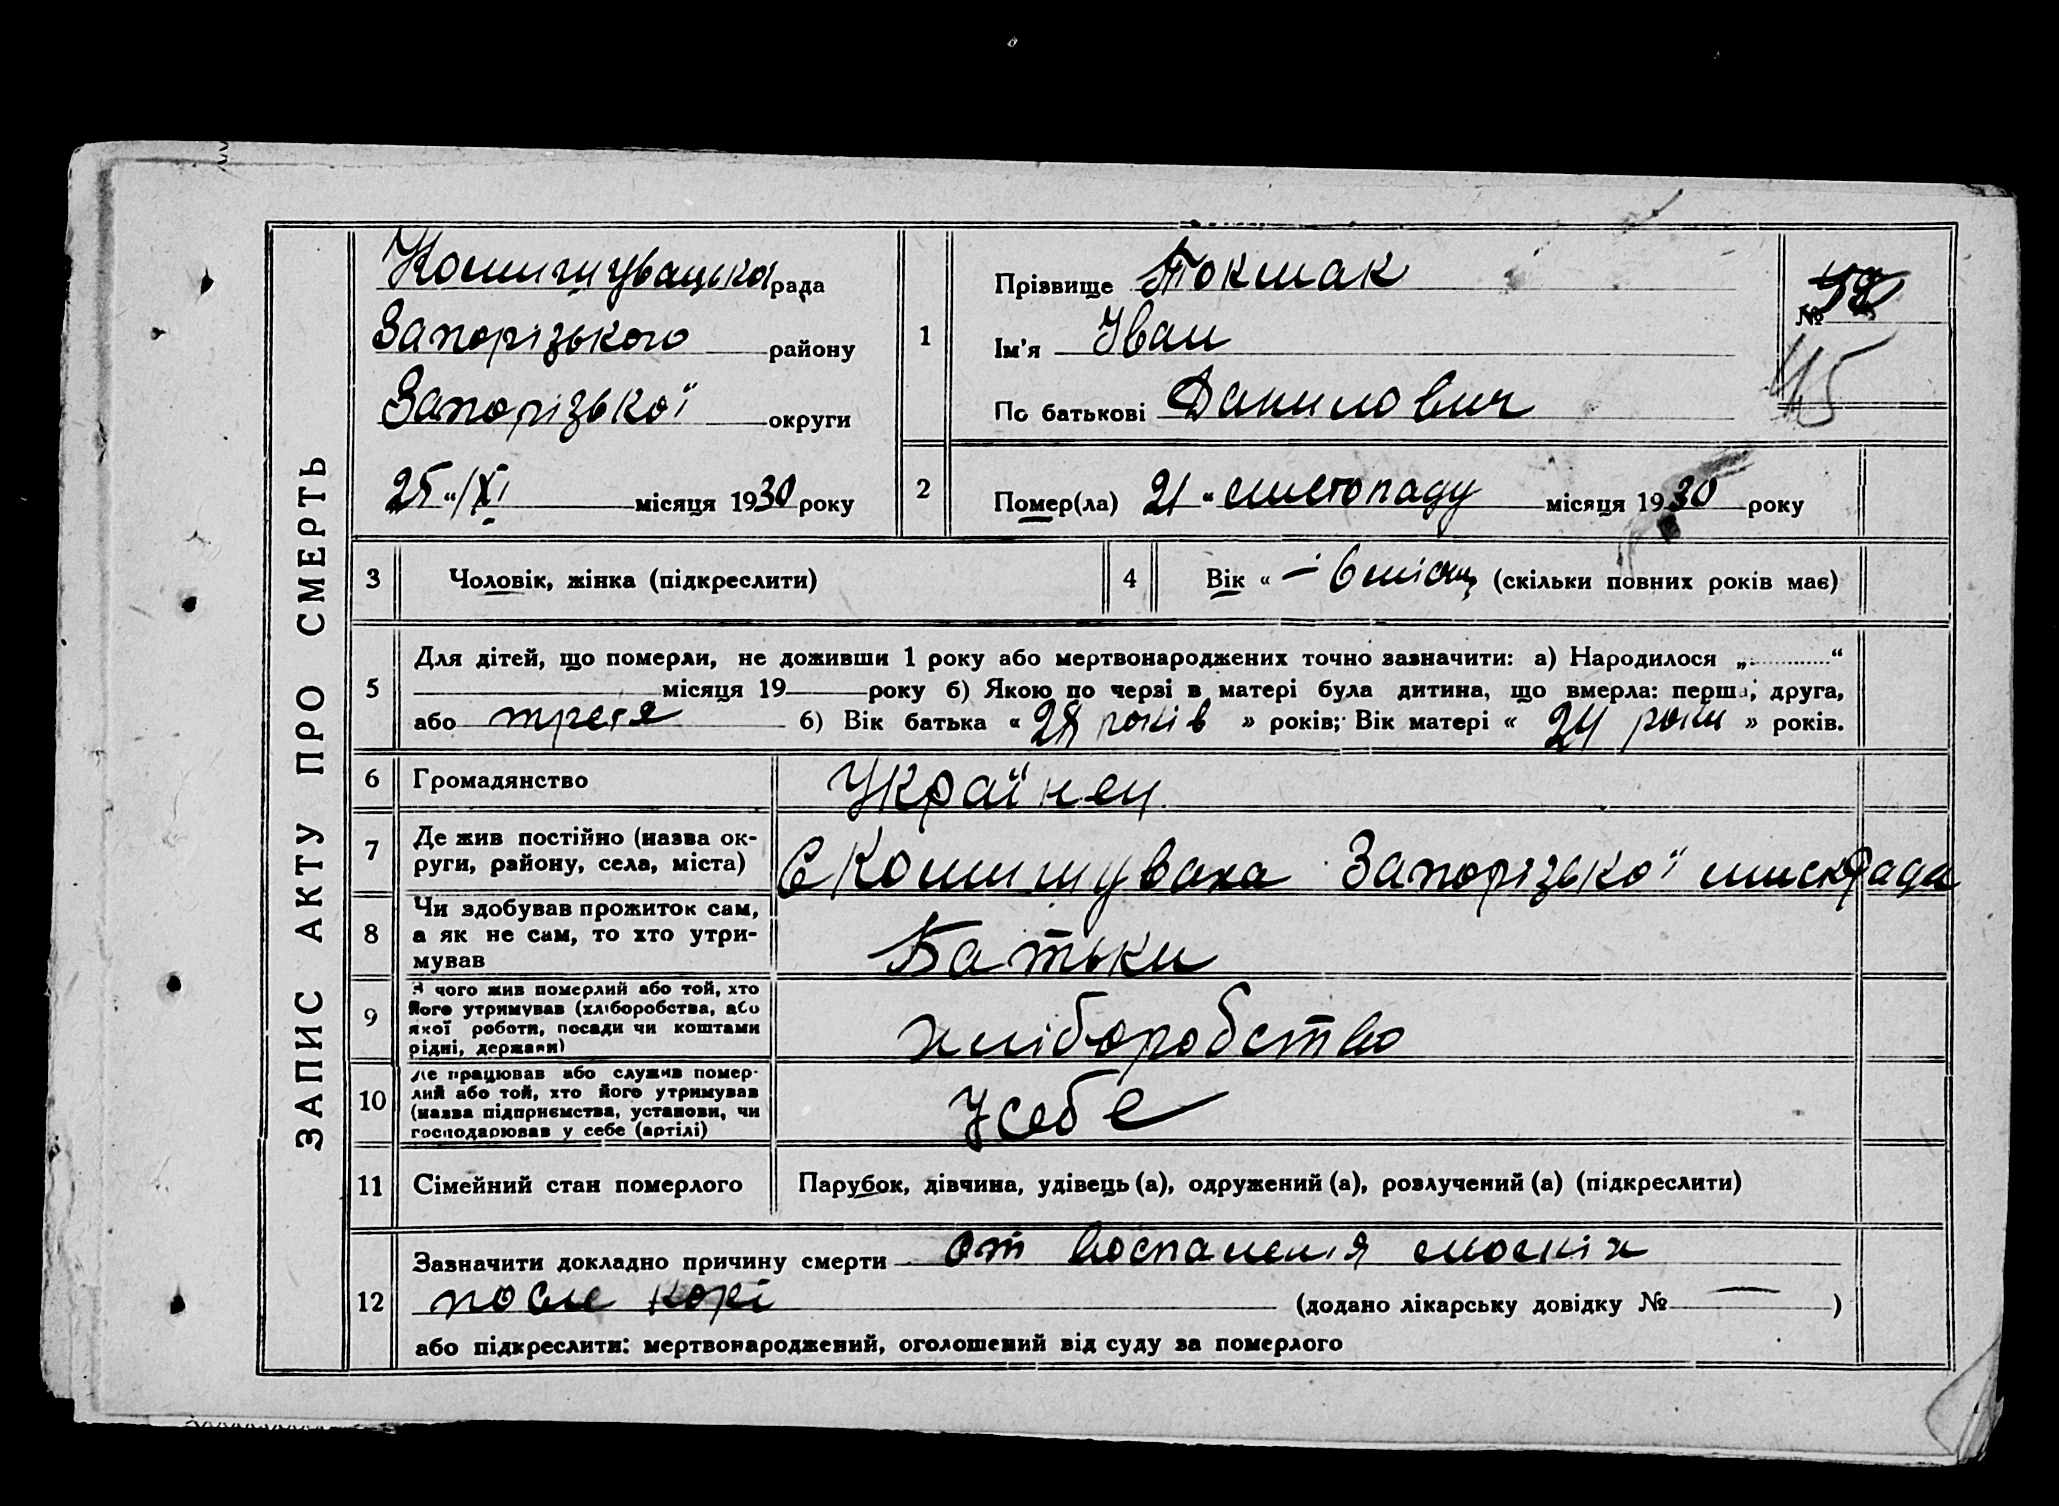 ЗАПИС АКТУ ПРО СМЕРТЬ
Комишувацька рада
Запорізького району
Запорізької округи
25 "/XI місяця 1930 року
1
Прізвище Токмак
Ім'я Іван
По батькові Данилович
№
115
2
Помер(ла) 21 " листопаду місяця 1930 року
3 Чоловік, жінка (підкреслити)
4 Вік « — 6 місяц (скільки повних років має)
5
Для дітей, що померли, не доживши 1 року або мертвонароджених точно зазначити: а) Народилося „............“
місяця 19 року б) Якою по черзі в матері була дитина, що вмерла: перша, друга,
або третя б) Вік батька « 28 років » років; Вік матері « 24 роки » років.
6 Громадянство Українец
7 Де жив постійно (назва ок-
руги, району, села, міста)
С Комишуваха Запорізької міскрада
8 Чи здобував прожиток сам,
а як не сам, то хто утри-
мував
Батьки
9 З чого жив померлий або той, хто
його утримував (хліборобства, або
якої роботи, посади чи коштами
рідні, держави)
хліборобство
10 Де працював або служив помер-
лий або той, хто його утримував
(назва підприємства, установи, чи
господарював у себе (артілі)
У себе
11 Сімейний стан померлого Парубок, дівчина, удівець (а), одружений (а), розлучений (а) (підкреслити)
12
Зазначити докладно причину смерти от воспаленія льогкіх
после корі (додано лікарську довідку № — )
або підкреслити: мертвонароджений, оголошений від суду за померлого